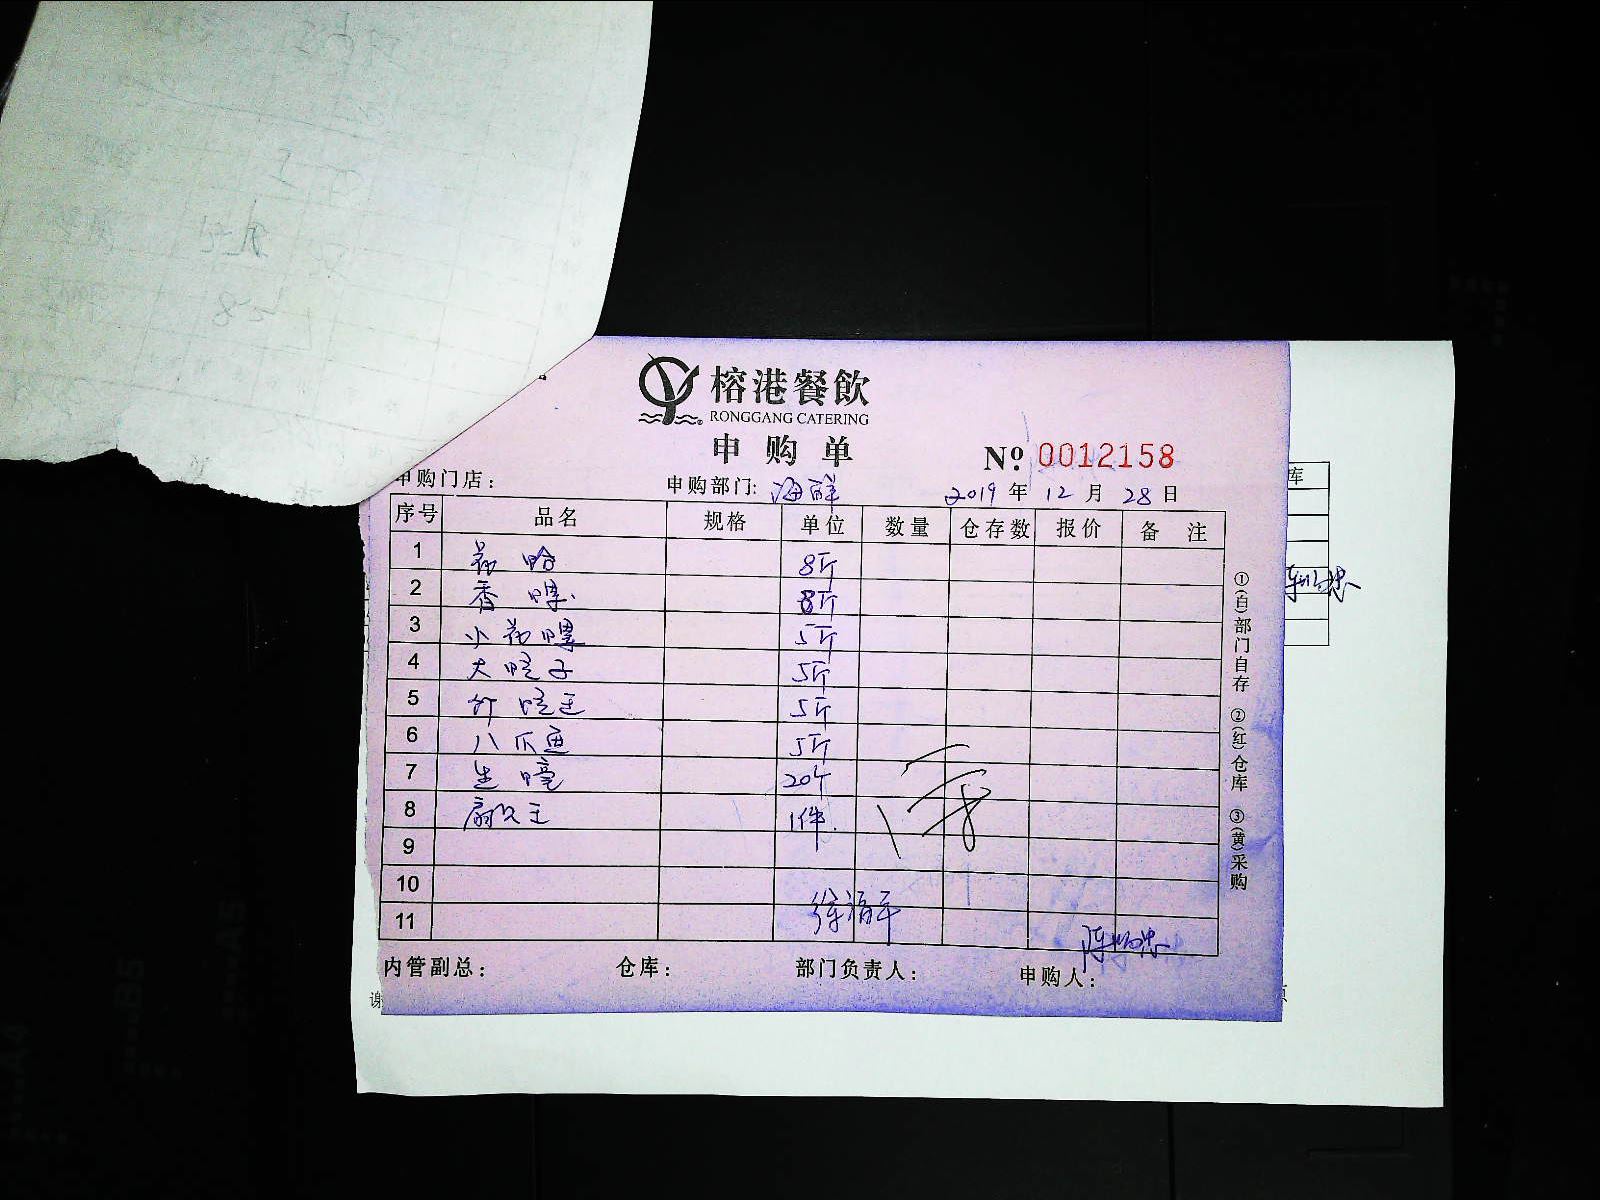 榕港餐飲
RONGGANG CATERING
申购单
№ 0012158
申购门店：
申购部门：海鲜 2019年12月28日
序号 品名 规格 单位 数量 仓存数 报价 备注
1 花哈 8斤
2 香螺 8斤
3 小花螺 5斤
4 大蛏子 5斤
5 竹蛏王 5斤
6 八爪鱼 5斤
7 生蠔 20个
8 扇贝王 1件
9
10
11
内管副总： 仓库： 部门负责人： 申购人：
①(白)部门自存 ②(红)仓库 ③(黄)采购
库